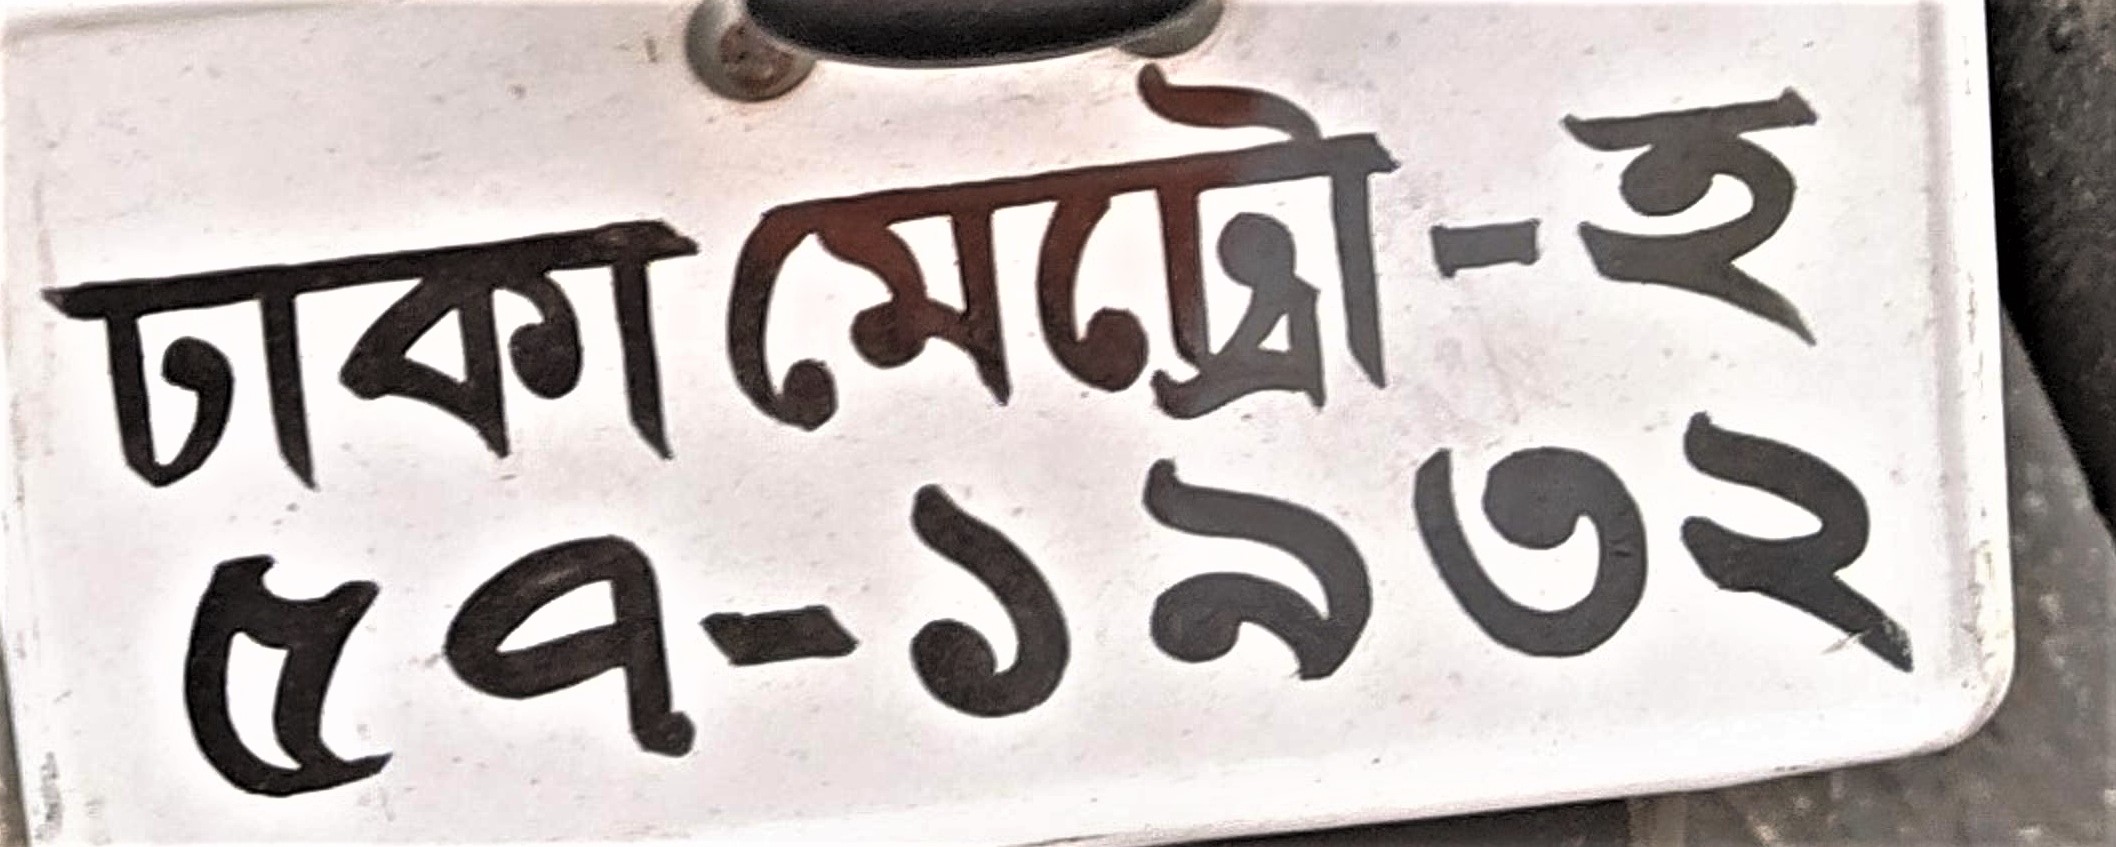 ঢাকা মেট্রো-হ
৫৭-১৯৩২